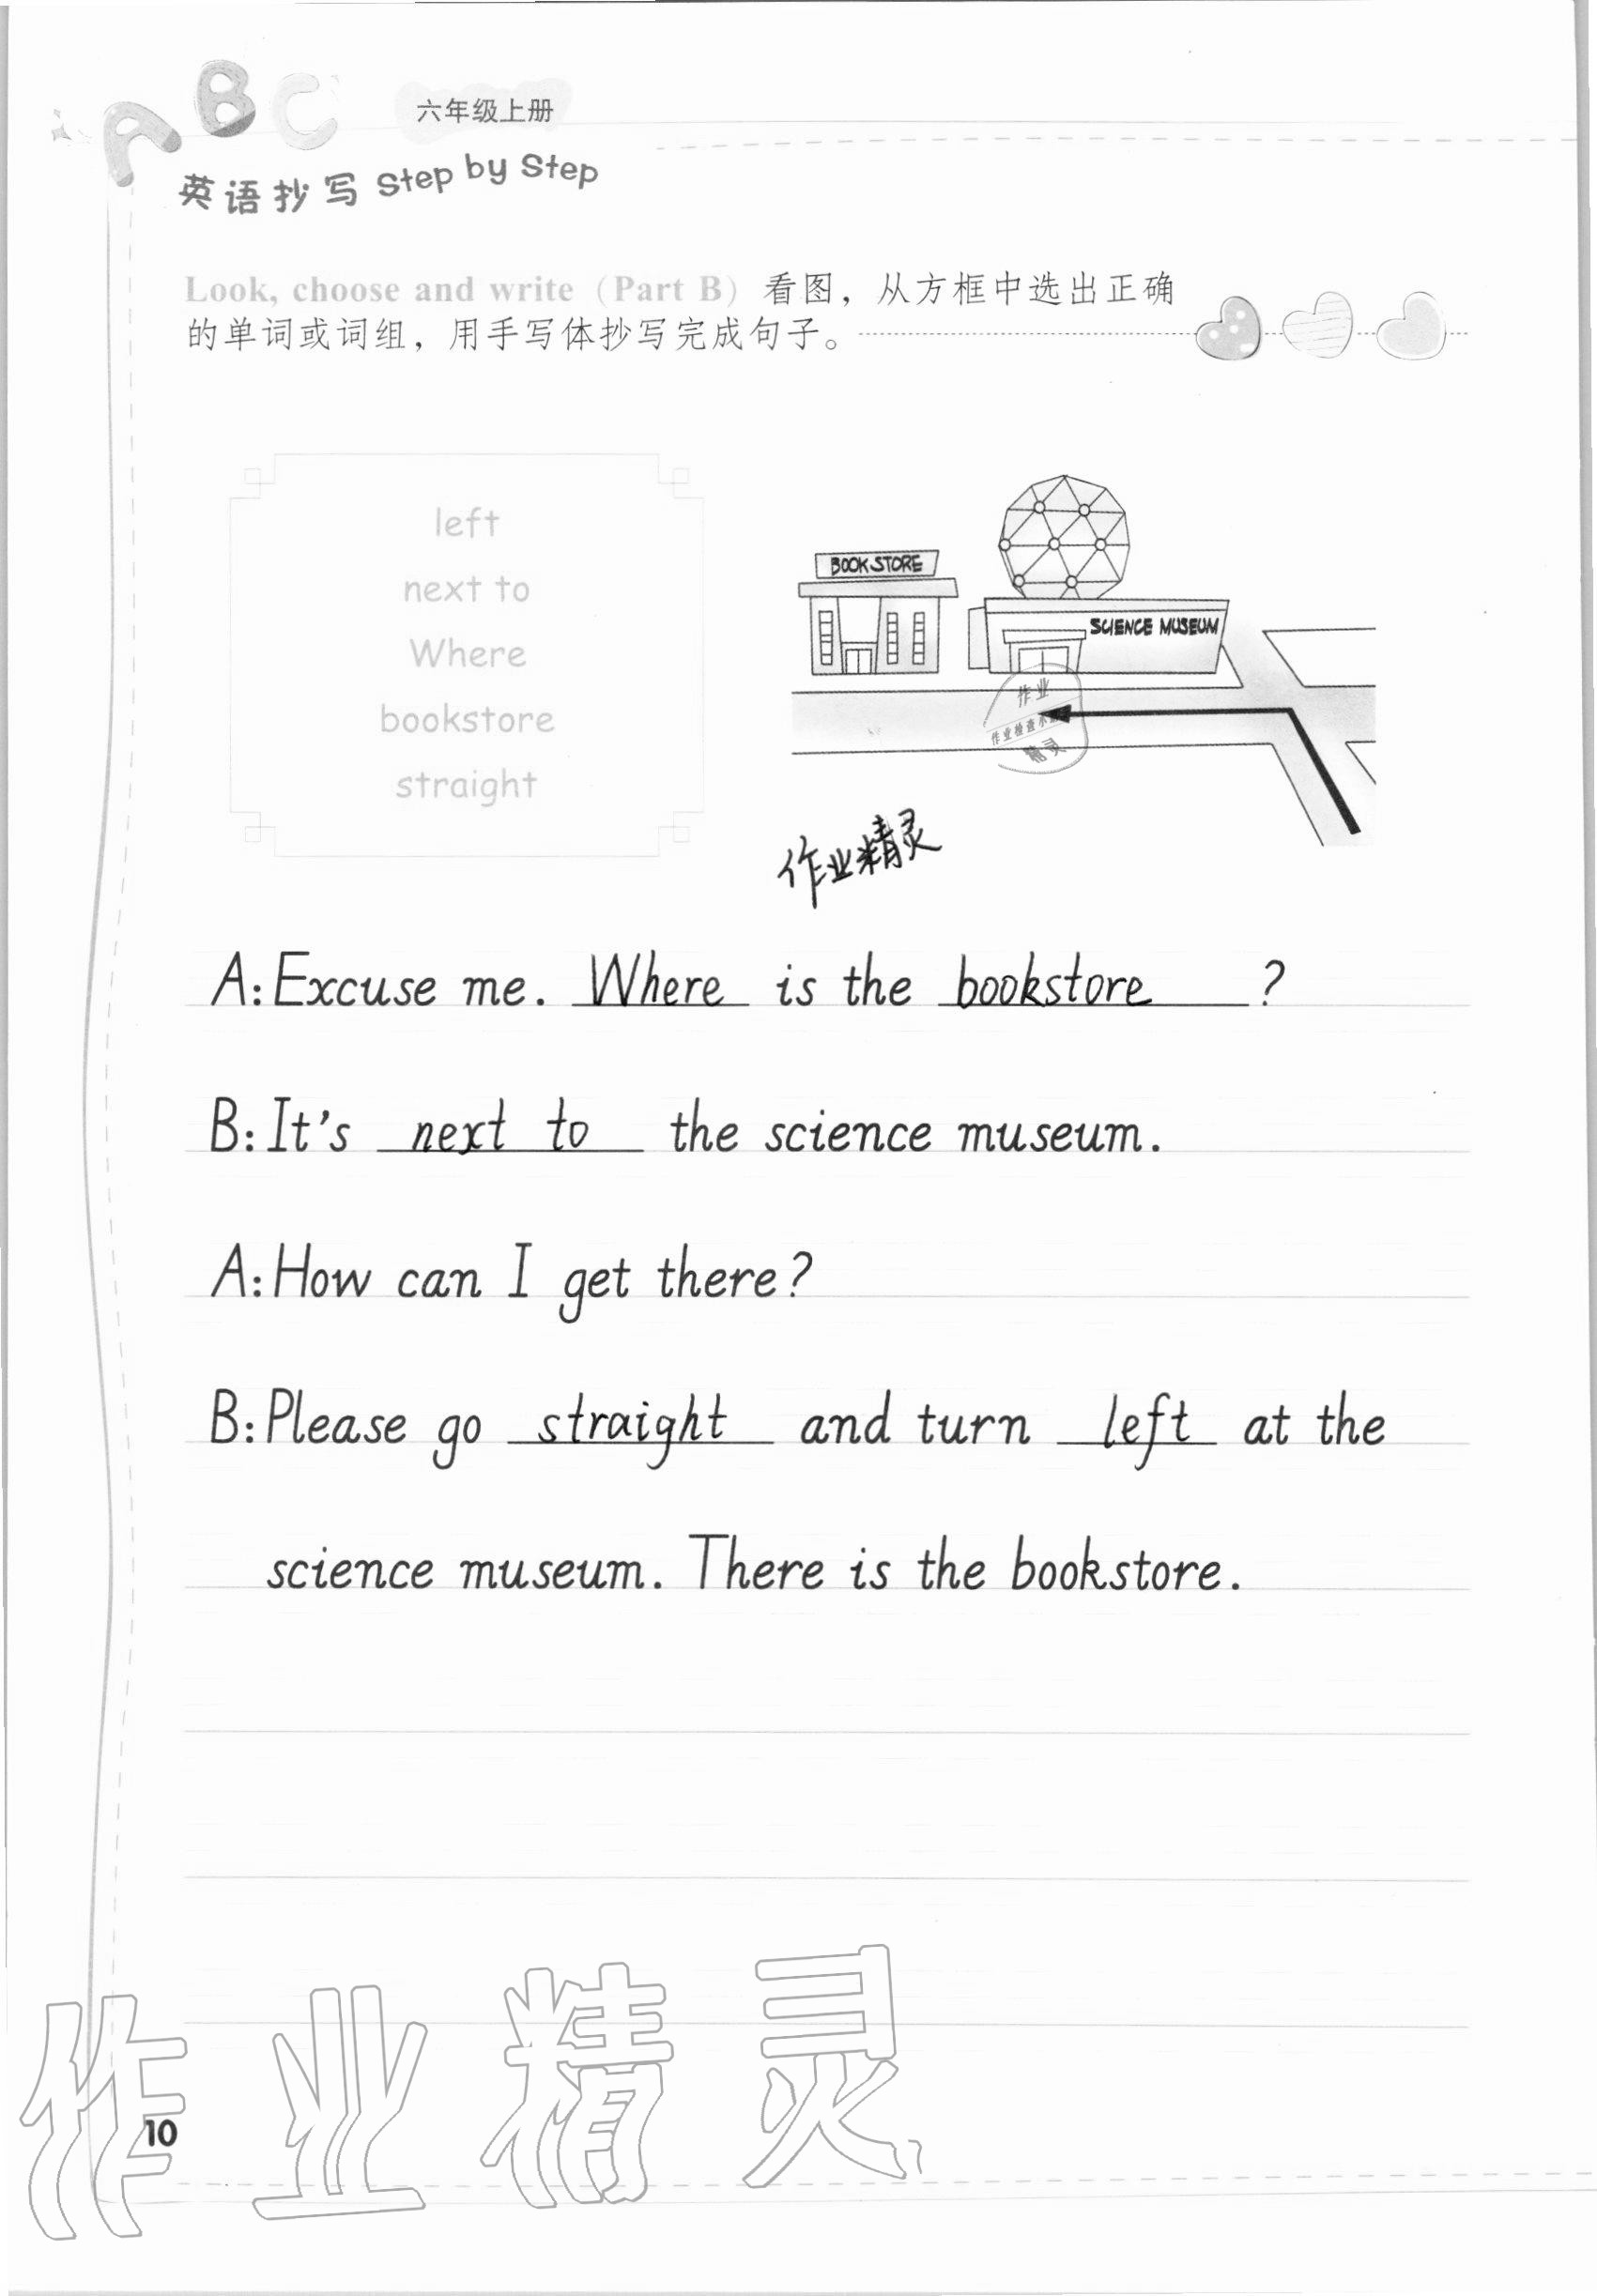 ABC
六年级上册
英语抄写 Step by Step
Look, choose and write (Part B) 看图，从方框中选出正确
的单词或词组，用手写体抄写完成句子。
left
next to
Where
bookstore
straight
BOOK STORE
SCIENCE MUSEUM
作业
作业检查小
精灵
作业精灵
A: Excuse me. Where is the bookstore ?
B: It's next to the science museum.
A: How can I get there?
B: Please go straight and turn left at the
science museum. There is the bookstore.
作业精灵
10